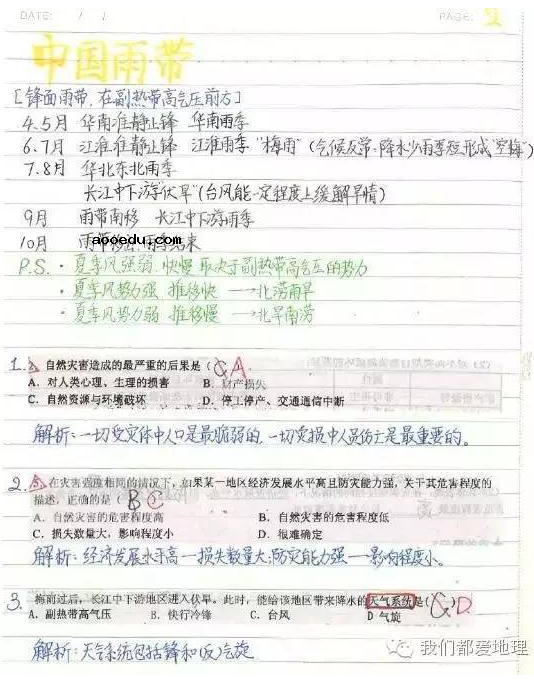 DATE: / /
PAGE:
中国雨带
[锋面雨带,在副热带高气压前方]
4.5月 华南准静止锋 华南雨季
6.7月 江淮准静止锋 江淮雨季 "梅雨" (气候反常·降水少雨季短形成"空梅")
7.8月 华北东北雨季
长江中下游"伏旱"(台风能一定程度上缓解旱情)
9月 雨带南移 长江中下游雨季
10月 雨带移出 雨季结束
aooedu.com
P.S. · 夏季风强弱、快慢 取决于副热带高气压的势力
· 夏季风势力强 推移快 → 北涝南旱
· 夏季风势力弱 推移慢 → 北旱南涝
1. 自然灾害造成的最严重的后果是( C A.
A. 对人类心理、生理的损害 B. 财产损失
C. 自然资源与环境破坏 D. 停工停产、交通通信中断
解析:一切受灾体中人口是最脆弱的,一切受损中人员伤亡是最重要的。
2. 在灾害强度相同的情况下,如果某一地区经济发展水平高且防灾能力强,关于其危害程度的
描述,正确的是( B C
A. 自然灾害的危害程度高 B. 自然灾害的危害程度低
C. 损失数量大,影响程度小 D. 很难确定
解析:经济发展水平高—损失数量大;防灾能力强—影响程度小。
3. 梅雨过后,长江中下游地区进入伏旱。此时,能给该地区带来降水的天气系统是( C )D
A. 副热带高气压 B. 快行冷锋 C. 台风 D 气旋
解析:天气系统包括锋和(反)气旋
我们都爱地理